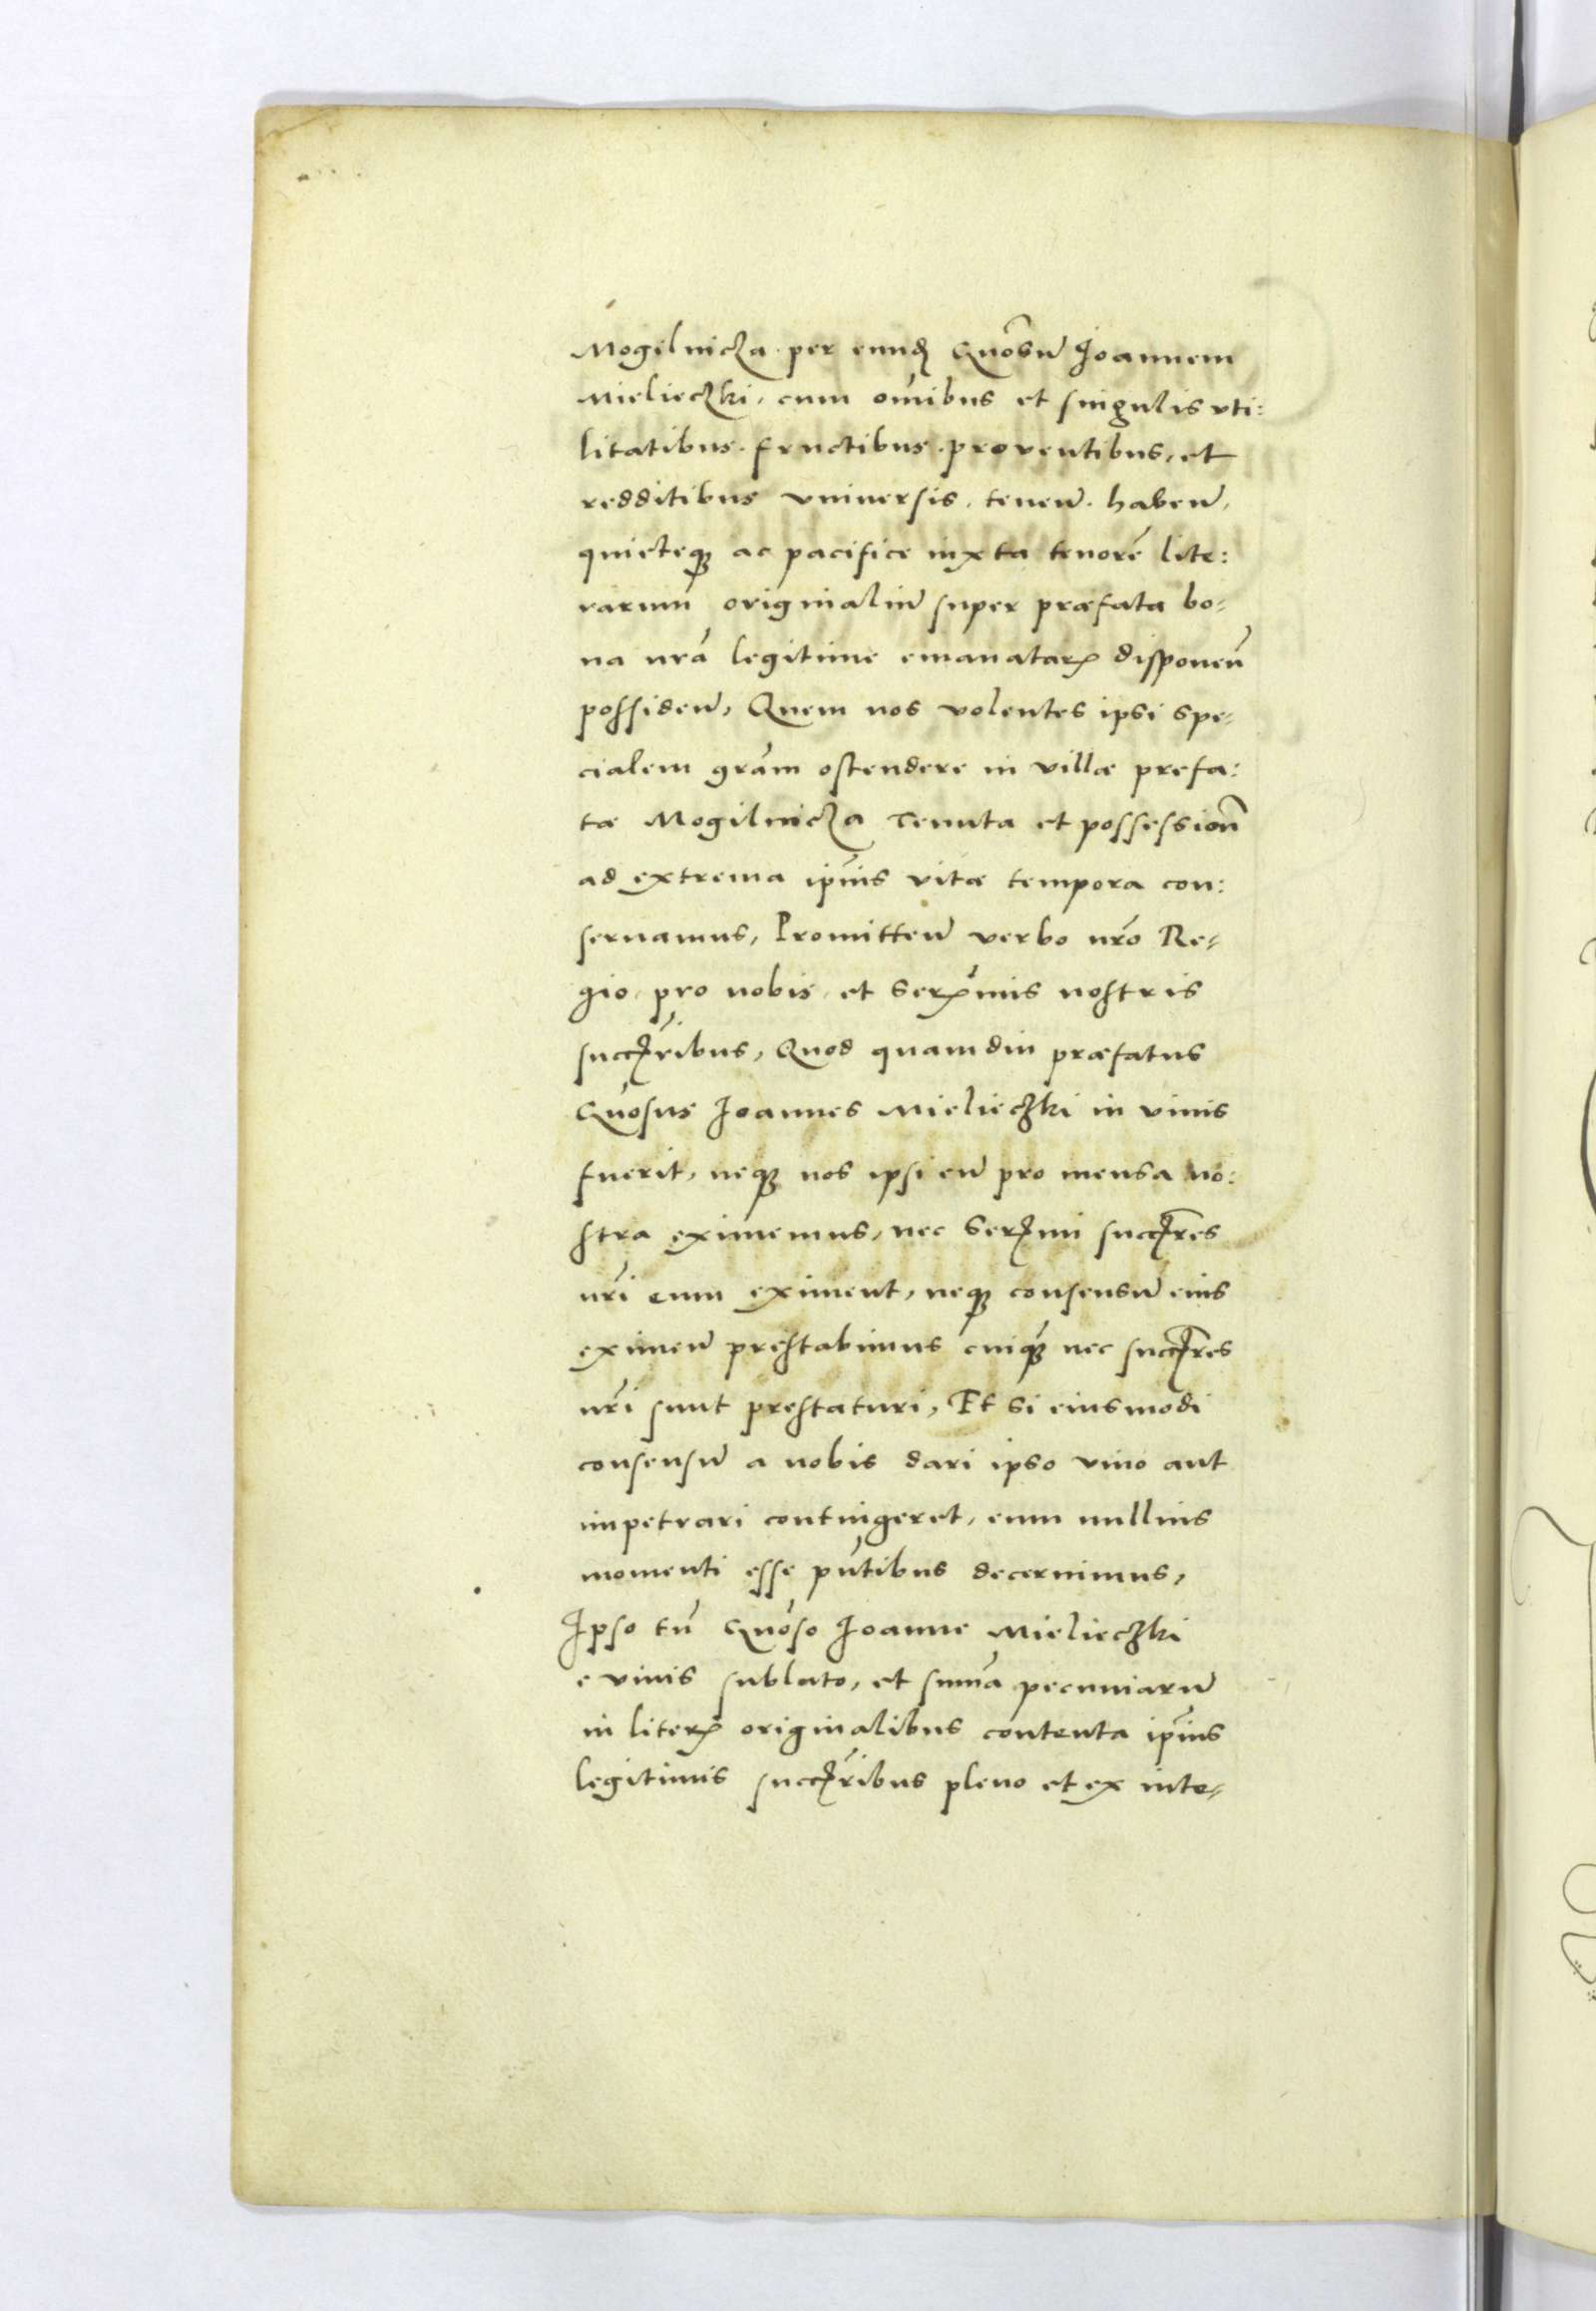 Mogilnicza per eund Gnosū Joannem
Mielieczki, cum om̄ibus et singulis vti:
litatibus. fructibus. proventibus, et
redditibus vniversis. tenen̄. haben̄.
quieteq3 ac pacifice iuxta tenorē lite:
rarum originaliū super præfata bo-
na nrā legitime emanatarꝝ disponen̄
possiden̄, Quem nos volentes ipsi spe-
cialem grām ostendere in villæ prefa:
tæ Mogilnicza Tenuta et possession̄
ad extrema ip̄ius vitæ tempora con:
seruamus, Promitten̄ verbo nrō Re-
gio, pro nobis, et Serꝝmis nostris
succꝝribus, Quod quamdiu præfatus
Gnosus Joannes Mielieczki in viuis
fuerit, neq3 nos ipsi eū pro mensa no:
stra eximemus, nec Serꝝmi succꝝres
nrī eum eximent, neq3 consensū eius
eximen̄ prestabimus cuiq3 nec succꝝres
nrī sunt prestaturi, Et si eiusmodi
consensū a nobis dari ipso viuo aut
impetrari contingeret, eum nullius
momenti esse pn̄tibus decernimus,
Ipso tn̄ Gnoso Joanne Mielieczki
e viuis sublato, et sum̄a pecuniarū
in literꝝ originalibus contenta ip̄ius
legitimis succꝝribus pleno et ex inte-